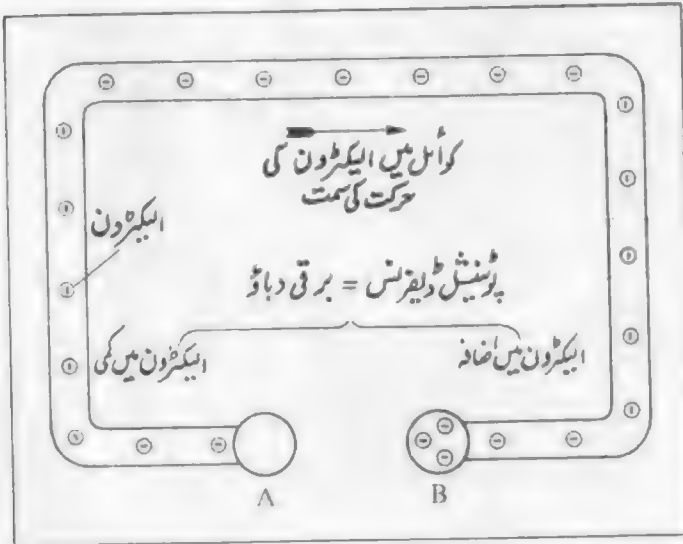 کوائل میں الیکٹرون کی
حرکت کی سمت
الیکٹرون
پوٹینشل ڈیفرنس = برقی دباؤ
الیکٹرون میں اضافہ
الیکٹرون میں کمی
A
B